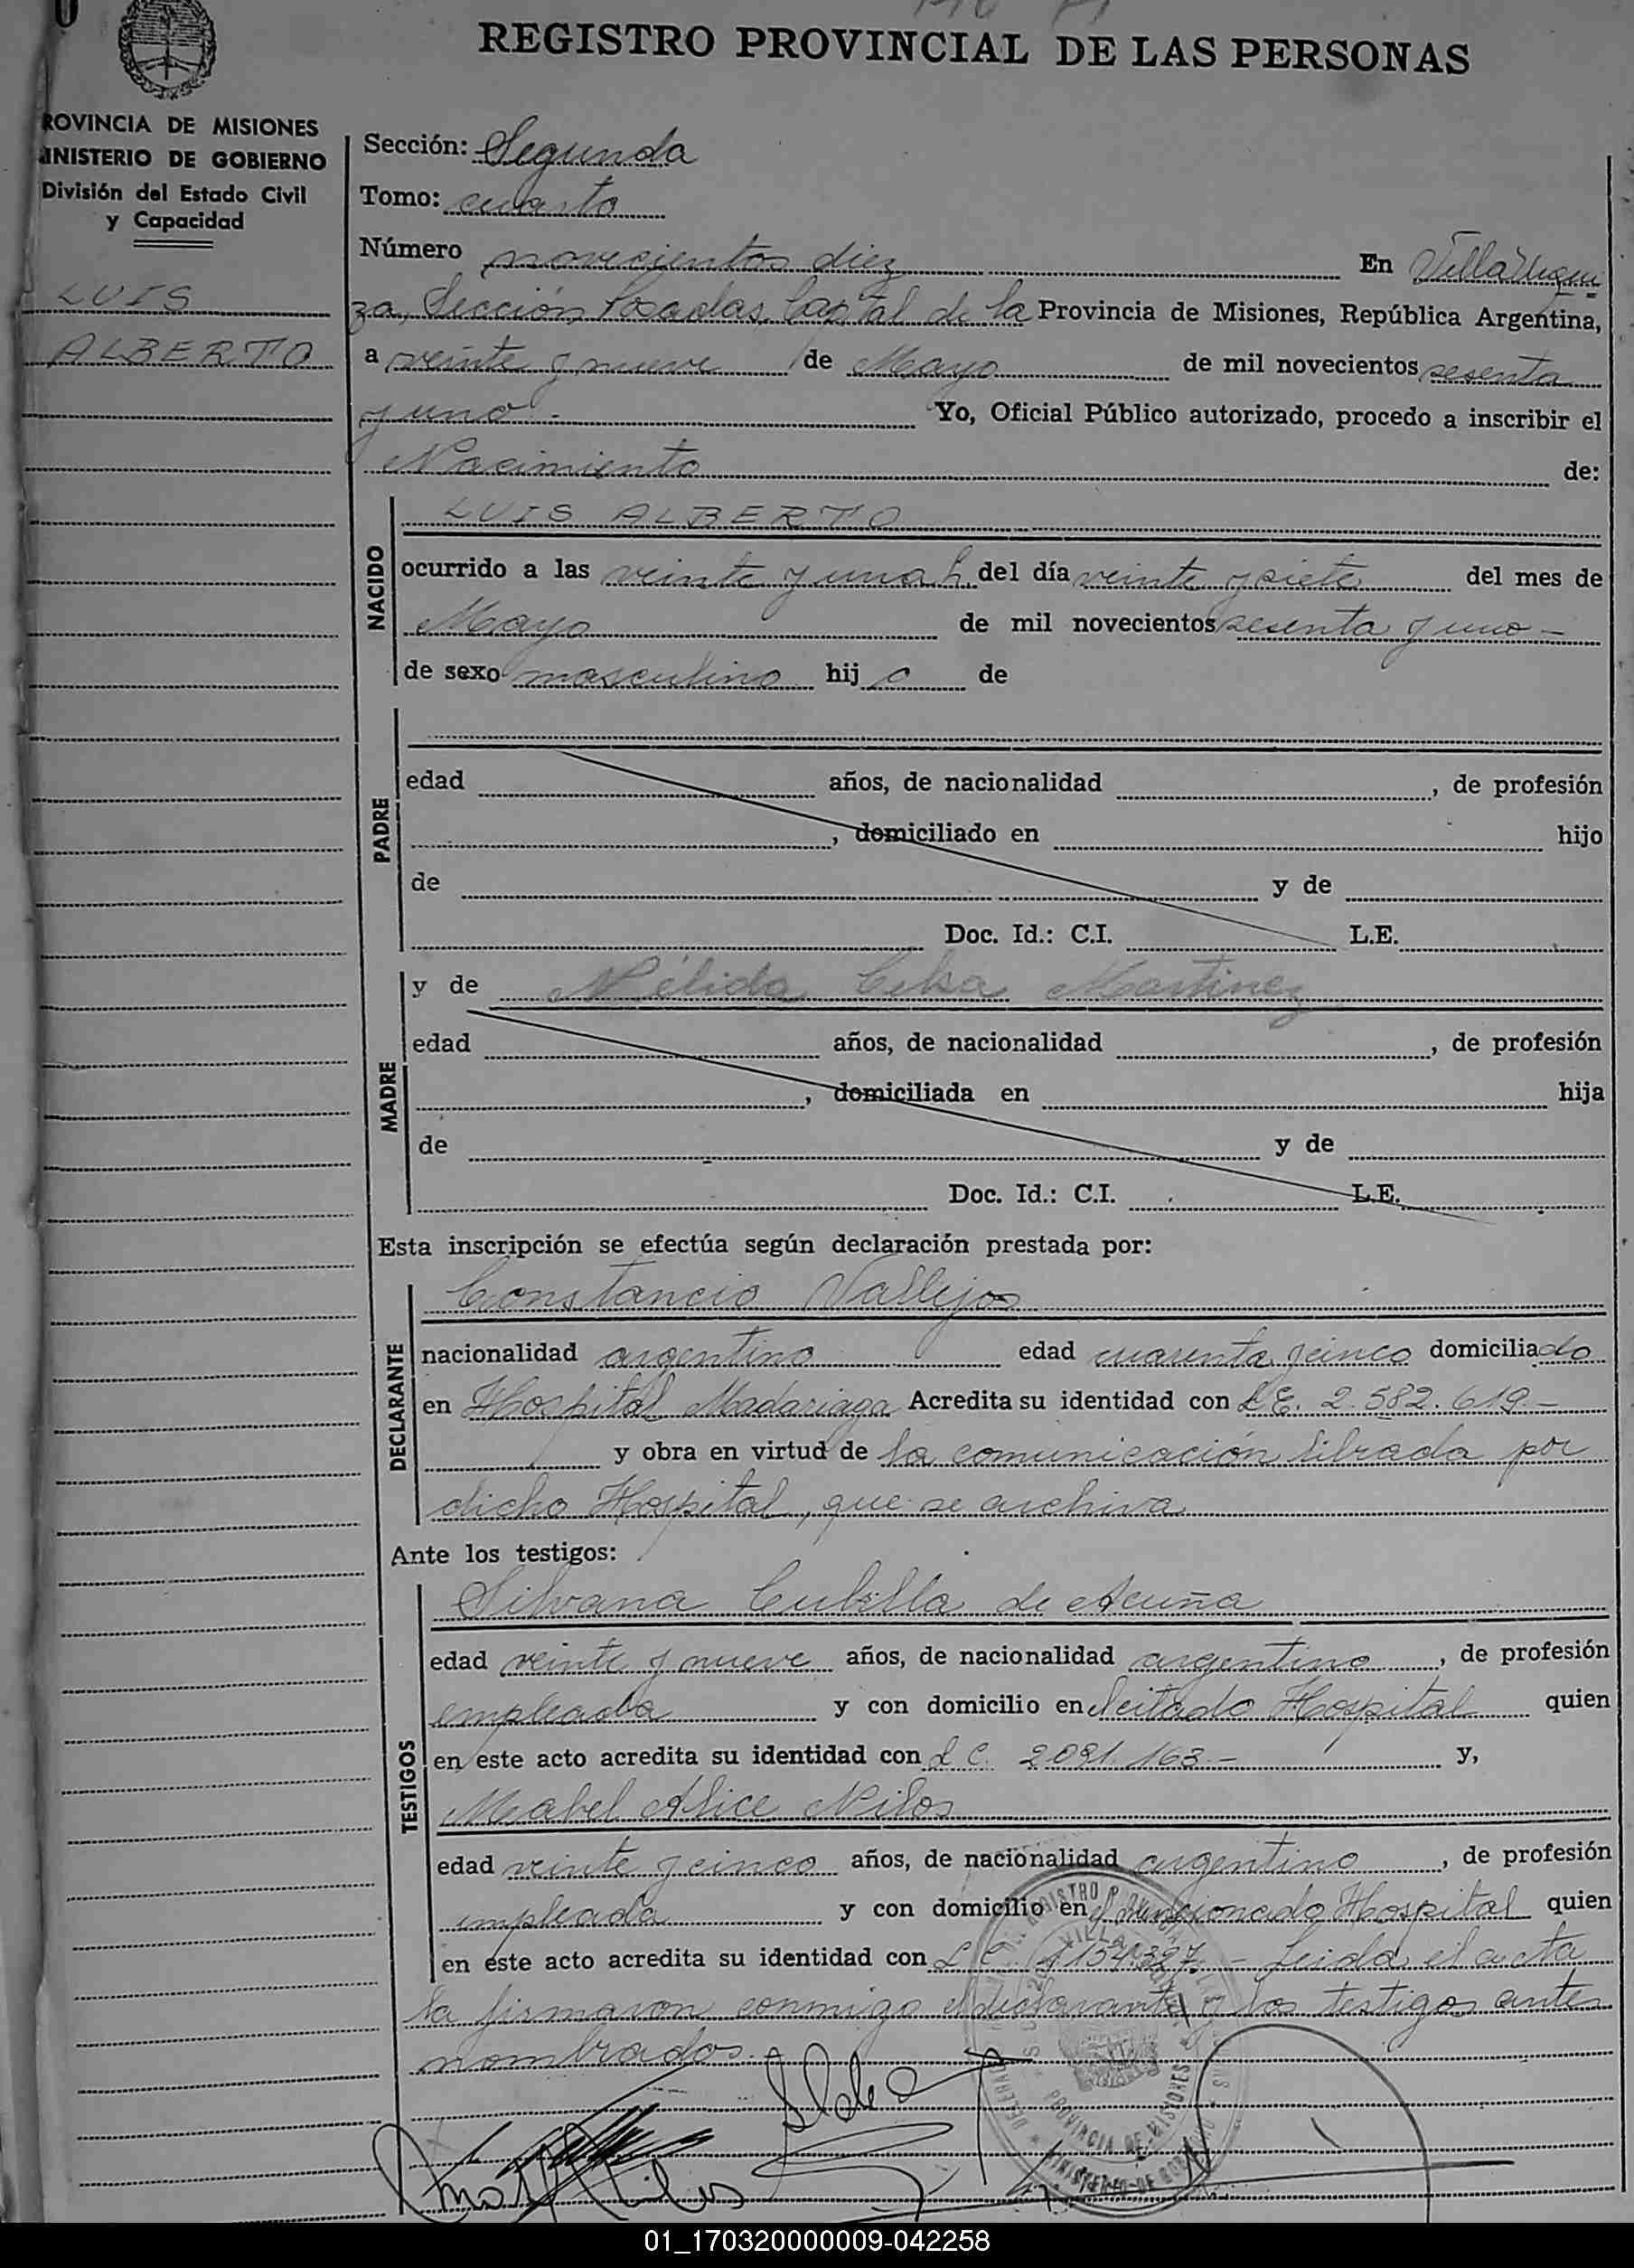 REGISTRO PROVINCIAL DE LAS PERSONAS
ROVINCIA DE MISIONES
INISTERIO DE GOBIERNO
División del Estado Civil
y Capacidad
LUIS
ALBERTO
Sección: Segunda
Tomo: cuarto
Número novecientos diez En Villa Urqui
za, Sección Posadas, Capital de la Provincia de Misiones, República Argentina,
a veinte y nueve de Mayo de mil novecientos sesenta
y uno.- Yo, Oficial Público autorizado, procedo a inscribir el
Nacimiento de:
NACIDO
LUIS ALBERTO
ocurrido a las veinte y una h. del día veinte y siete del mes de
Mayo de mil novecientos sesenta y uno -
de sexo masculino hij o de
PADRE
edad años, de nacionalidad , de profesión
, domiciliado en hijo
de y de
Doc. Id.: C.I. L.E.
MADRE
y de Nélida Celsa Martinez
edad años, de nacionalidad , de profesión
, domiciliada en hija
de y de
Doc. Id.: C.I. L.E.
Esta inscripción se efectúa según declaración prestada por:
DECLARANTE
Constancio Vallejos
nacionalidad argentino edad cuarenta y cinco domiciliado
en Hospital Madariaga Acredita su identidad con L.E. 2.582.619.-
y obra en virtud de la comunicación librada por
dicho Hospital, que se archiva
Ante los testigos:
TESTIGOS
Silvana Cubilla de Acuña
edad veinte y nueve años, de nacionalidad argentino , de profesión
empleada y con domicilio en el citado Hospital quien
en este acto acredita su identidad con L C. 2.091.163.- y,
Mabel Alice Nilos
edad veinte y cinco años, de nacionalidad argentino , de profesión
empleada y con domicilio en el mencionado Hospital quien
en este acto acredita su identidad con L C. 1154.327. - Leida el acta
la firmaron conmigo el declarante y los testigos antes
nombrados.-
PROVINCIA DE MISIONES
01_170320000009-042258